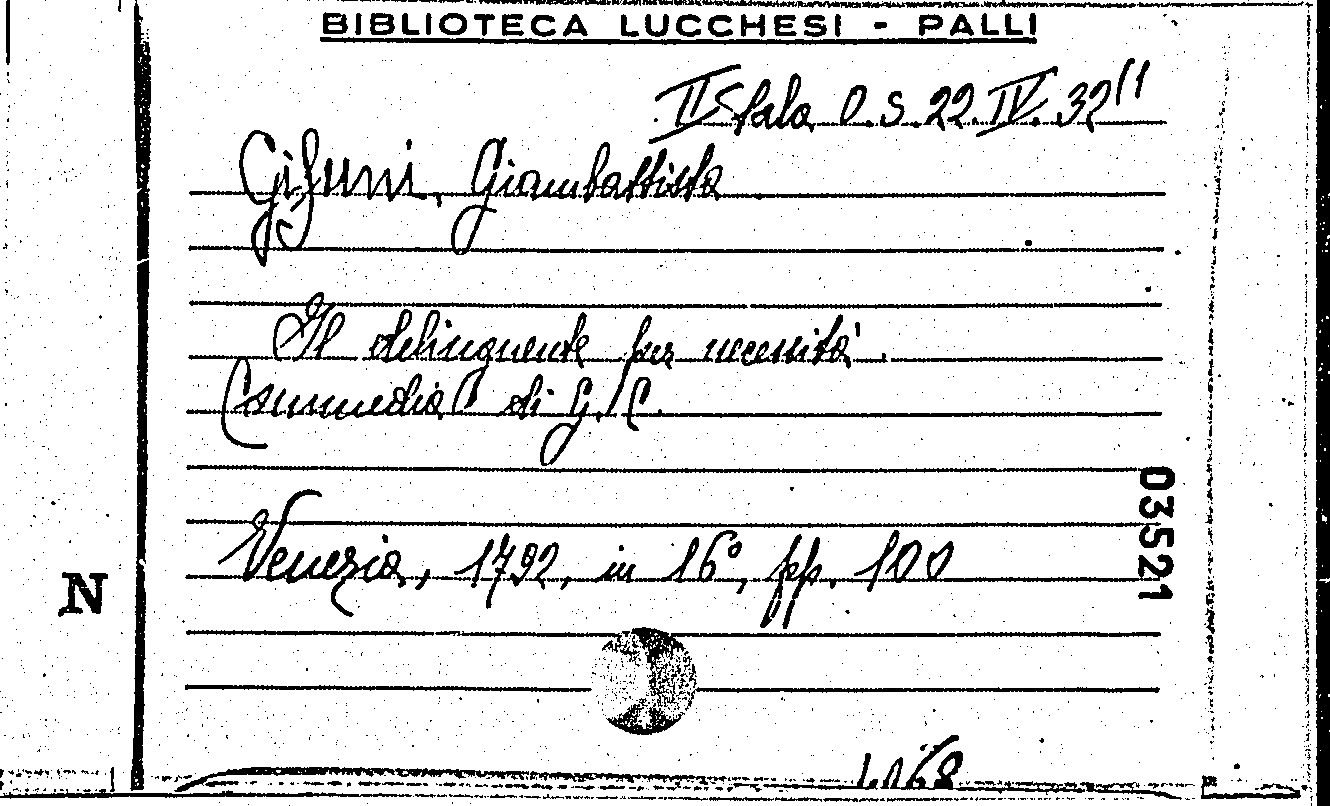 BIBLIOTECA LUCCHESI - PALLI
II Sala O.S.22.IV.32/1
Gifuni, Giambattista
Il delinquente per necessità.
Commedia di G. G.
Venezia, 1792, in 16°, pp. 100
03521
N